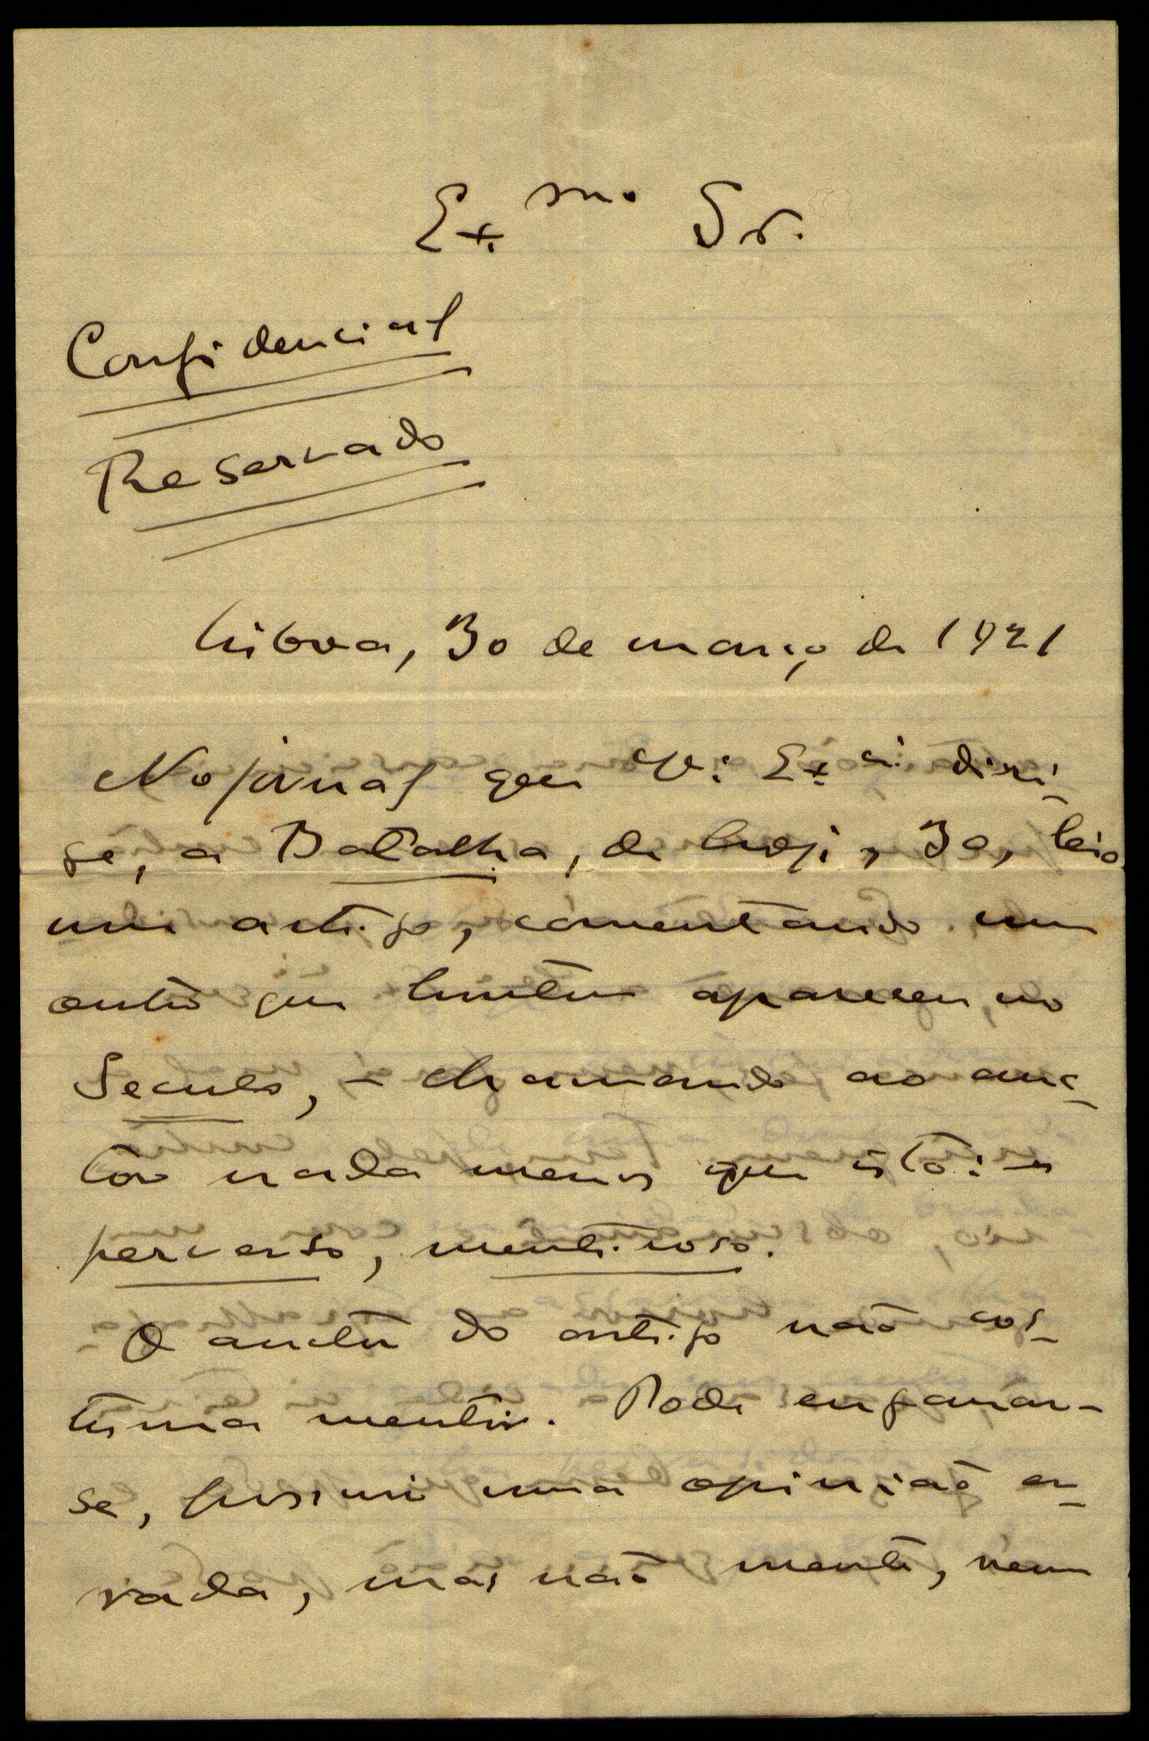 Ex.mo Sr.
Confidencial
Reservado
Lisboa, 30 de março de 1921
No jornal que V. Ex.cia diri-
ge, a Batalha, de hoje, 30, leio
um artigo, comentando um
outro que hontem apareceu, no
Seculo, – chamando ao auc-
tor nada menos que isto: –
perverso, mentiroso.
O auctor do artigo não cos-
tuma mentir. Pode enganar-
se, possuir uma opinião er-
rada, mas não mente, nem